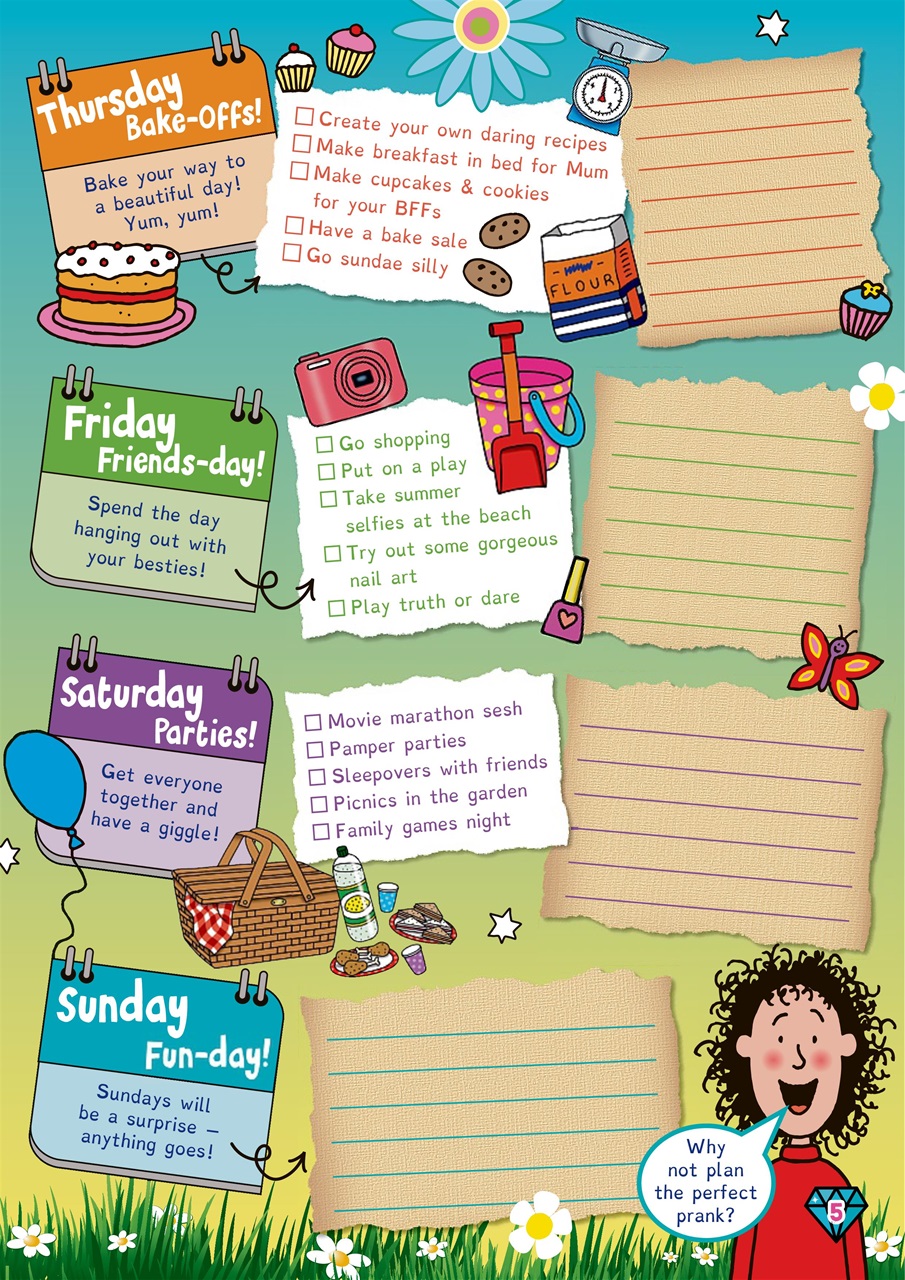 Thursday
Bake-Offs!
Bake your way to
a beautiful day!
Yum, yum!
☐ Create your own daring recipes
☐ Make breakfast in bed for Mum
☐ Make cupcakes & cookies
for your BFFs
☐ Have a bake sale
☐ Go sundae silly
FLOUR
Friday
Friends-day!
Spend the day
hanging out with
your besties!
☐ Go shopping
☐ Put on a play
☐ Take summer
selfies at the beach
☐ Try out some gorgeous
nail art
☐ Play truth or dare
Saturday
Parties!
Get everyone
together and
have a giggle!
☐ Movie marathon sesh
☐ Pamper parties
☐ Sleepovers with friends
☐ Picnics in the garden
☐ Family games night
Sunday
Fun-day!
Sundays will
be a surprise –
anything goes!
Why
not plan
the perfect
prank?
5